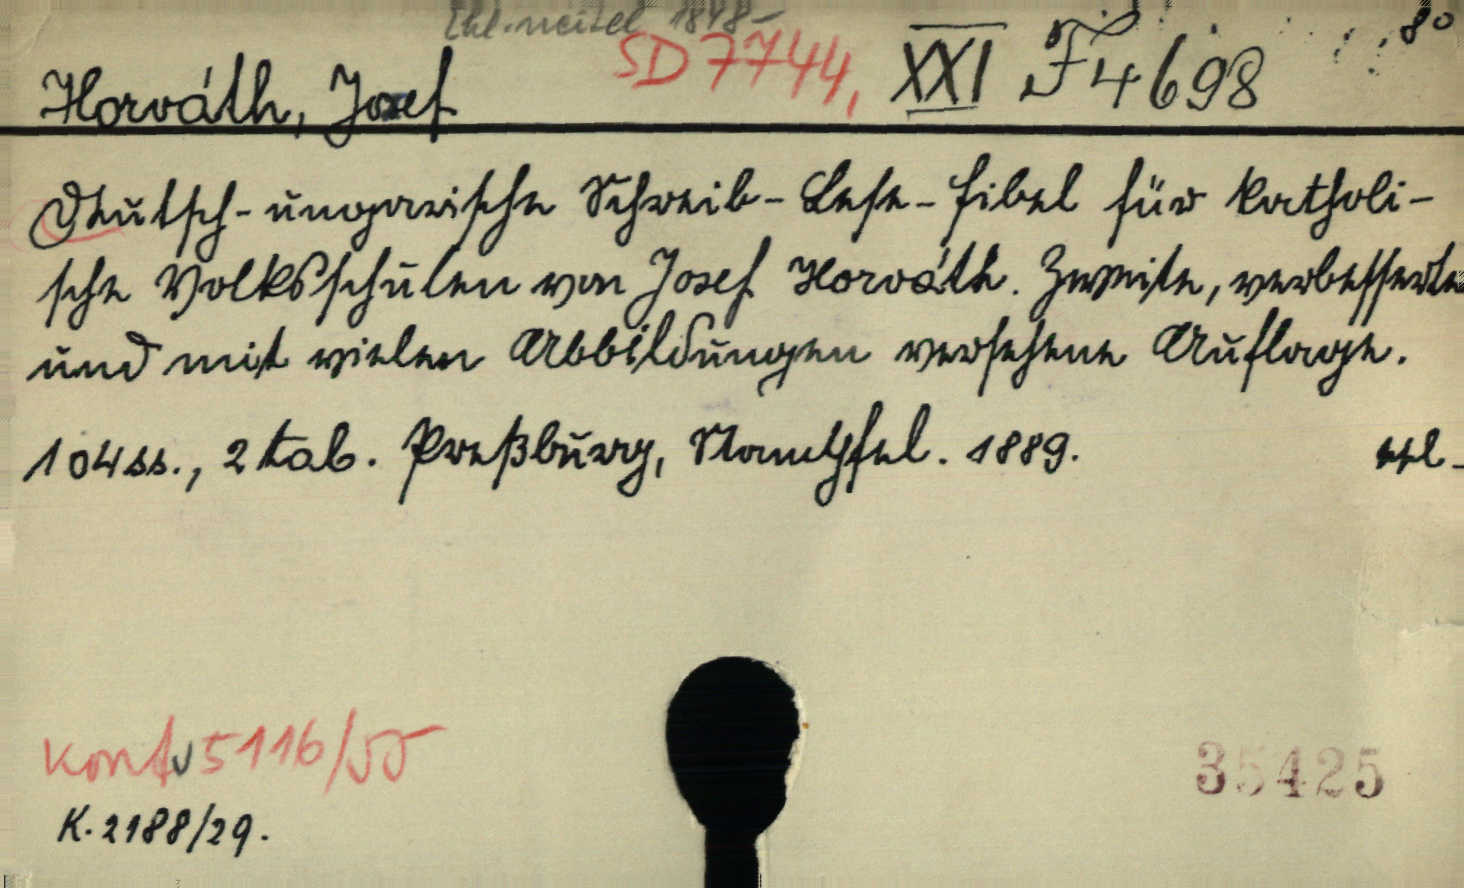 1848-
SD 7744, XXI F 4698 8°
Horváth, Josef
Deutsch-ungarische Schreib-Lese-Fibel für katholi-
sche Volksschulen von Josef Horváth. Zweite, verbesserte
und mit vielen Abbildungen versehene Auflage.
104 ss., 2 tab. Preßburg, Stampfel. 1889.
konf 5116/55
35425
K. 2188/29.